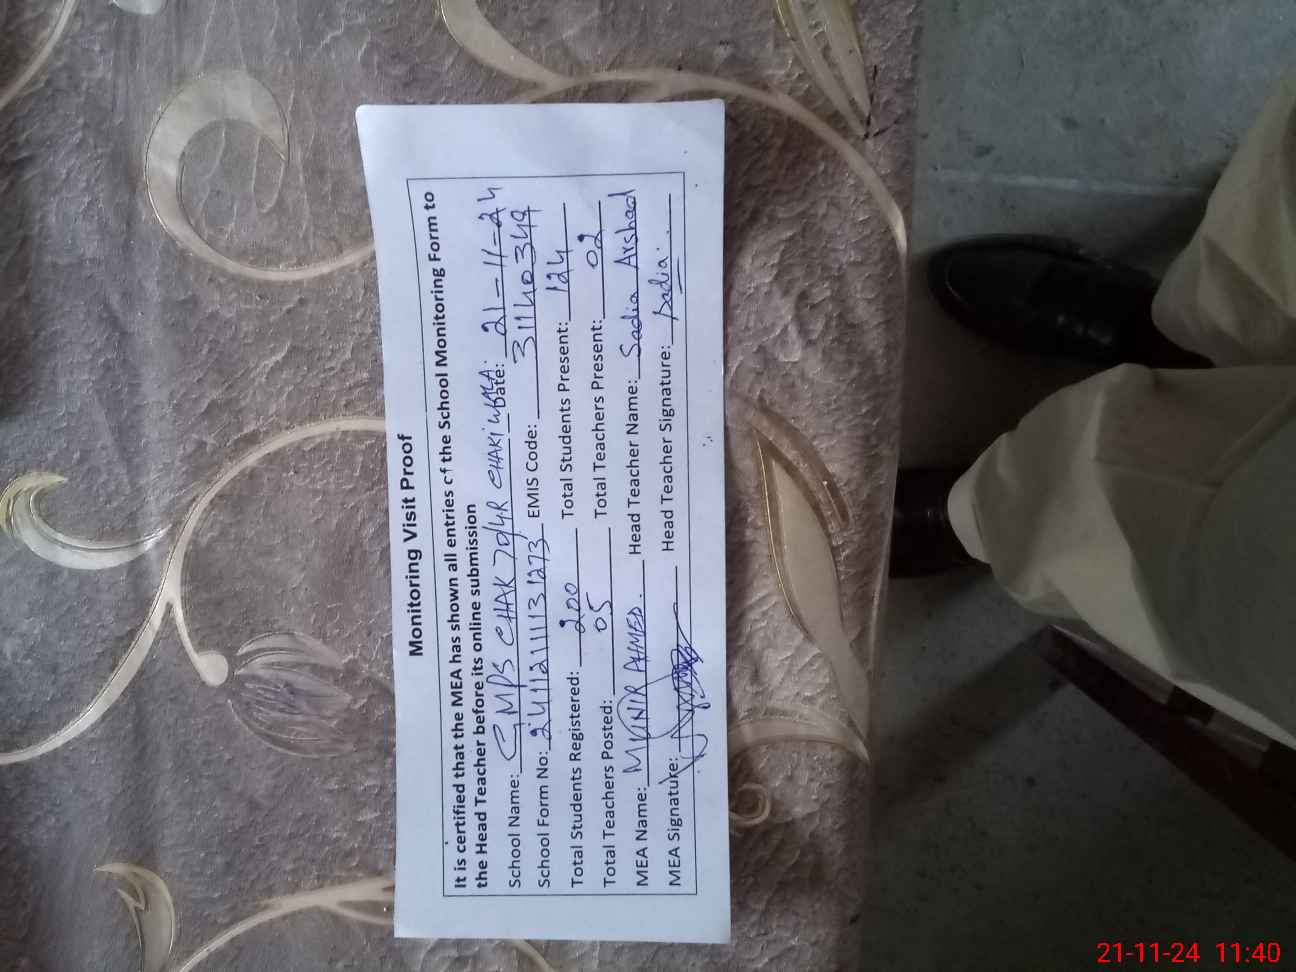 Monitoring Visit Proof
It is certified that the MEA has shown all entries of the School Monitoring Form to
the Head Teacher before its online submission
School Name: GMPS CHAK 70/4R CHAKIWALA Date: 21-11-24
School Form No: 2411211113 1273 EMIS Code: 31140349
Total Students Registered: 200 Total Students Present: 124
Total Teachers Posted: 05 Total Teachers Present: 02
MEA Name: MUNIR AHMED. Head Teacher Name: Sadia Arshad
MEA Signature: Head Teacher Signature: Sadia.
21-11-24 11:40